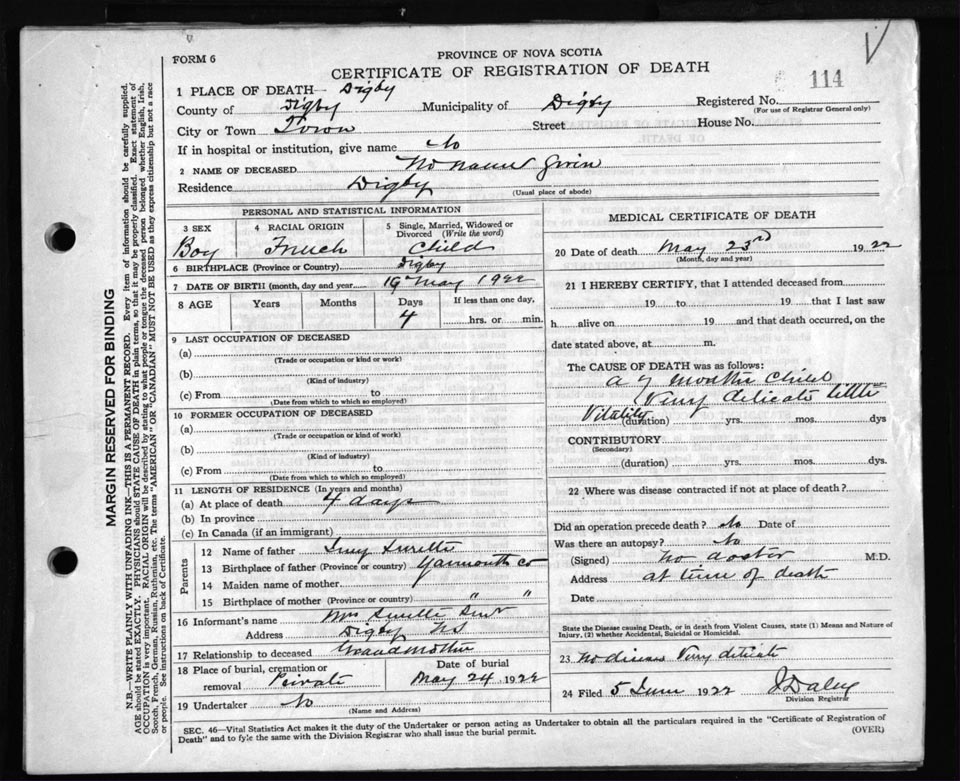 FORM 6
PROVINCE OF NOVA SCOTIA
CERTIFICATE OF REGISTRATION OF DEATH
114
1 PLACE OF DEATH— Digby
County of Digby Municipality of Digby Registered No.
(For use of Registrar General only)
City or Town Town Street House No.
If in hospital or institution, give name No
2 NAME OF DECEASED No name Given
Residence Digby
(Usual place of abode)
PERSONAL AND STATISTICAL INFORMATION
3 SEX 4 RACIAL ORIGIN 5 Single, Married, Widowed or Divorced (Write the word)
Boy French Child
6 BIRTHPLACE (Province or Country) Digby
7 DATE OF BIRTH (month, day and year) 19 May 1922
8 AGE Years Months Days If less than one day,
4 hrs. or min.
9 LAST OCCUPATION OF DECEASED
(a)
(Trade or occupation or kind or work)
(b)
(Kind of industry)
(c) From to
(Date from which to which so employed)
10 FORMER OCCUPATION OF DECEASED
(a)
(Trade or occupation or kind of work)
(b)
(Kind of industry)
(c) From to
(Date from which to which so employed)
11 LENGTH OF RESIDENCE (In years and months)
(a) At place of death 4 days
(b) In province
(c) In Canada (if an immigrant)
Parents
12 Name of father Surette
13 Birthplace of father (Province or country) Yarmouth Co
14 Maiden name of mother
15 Birthplace of mother (Province or country) " "
16 Informant's name Mrs Surette
Address Digby NS
17 Relationship to deceased Grandmother
18 Place of burial, cremation or removal Private Date of burial May 24 1922
19 Undertaker No
(Name and Address)
MEDICAL CERTIFICATE OF DEATH
20 Date of death May 23rd 1922
(Month, day and year)
21 I HEREBY CERTIFY, that I attended deceased from
19 to 19 that I last saw
h alive on 19 and that death occurred, on the
date stated above, at m.
The CAUSE OF DEATH was as follows:
a 7 months child
Very delicate little
Vitality
(duration) yrs. mos. dys
CONTRIBUTORY
(Secondary)
(duration) yrs. mos. dys.
22 Where was disease contracted if not at place of death?
Did an operation precede death? No Date of
Was there an autopsy? No
(Signed) No doctor M.D.
Address at time of death
Date
State the Disease causing Death, or in death from Violent Causes, state (1) Means and Nature of
Injury, (2) whether Accidental, Suicidal or Homicidal.
23 No disease Very delicate
24 Filed 5 June 1922 J Daley
Division Registrar
SEC. 46—Vital Statistics Act makes it the duty of the Undertaker or person acting as Undertaker to obtain all the particulars required in the "Certificate of Registration of
Death" and to fyle the same with the Division Registrar who shall issue the burial permit.
(OVER)
MARGIN RESERVED FOR BINDING
N.B.—WRITE PLAINLY WITH UNFADING INK—THIS IS A PERMANENT RECORD. Every item of information should be carefully supplied.
AGE should be stated EXACTLY. PHYSICIANS should STATE CAUSE OF DEATH in plain terms, so that it may be properly classified. Exact statement of
OCCUPATION is very important. RACIAL ORIGIN will be described by stating to what people or tongue the deceased person belonged whether English, Irish,
Scotch, French, German, Russian, Ruthenian, etc. The terms "AMERICAN" OR "CANADIAN" MUST NOT BE USED as they express citizenship but not a race
or people. See instructions on back of Certificate.